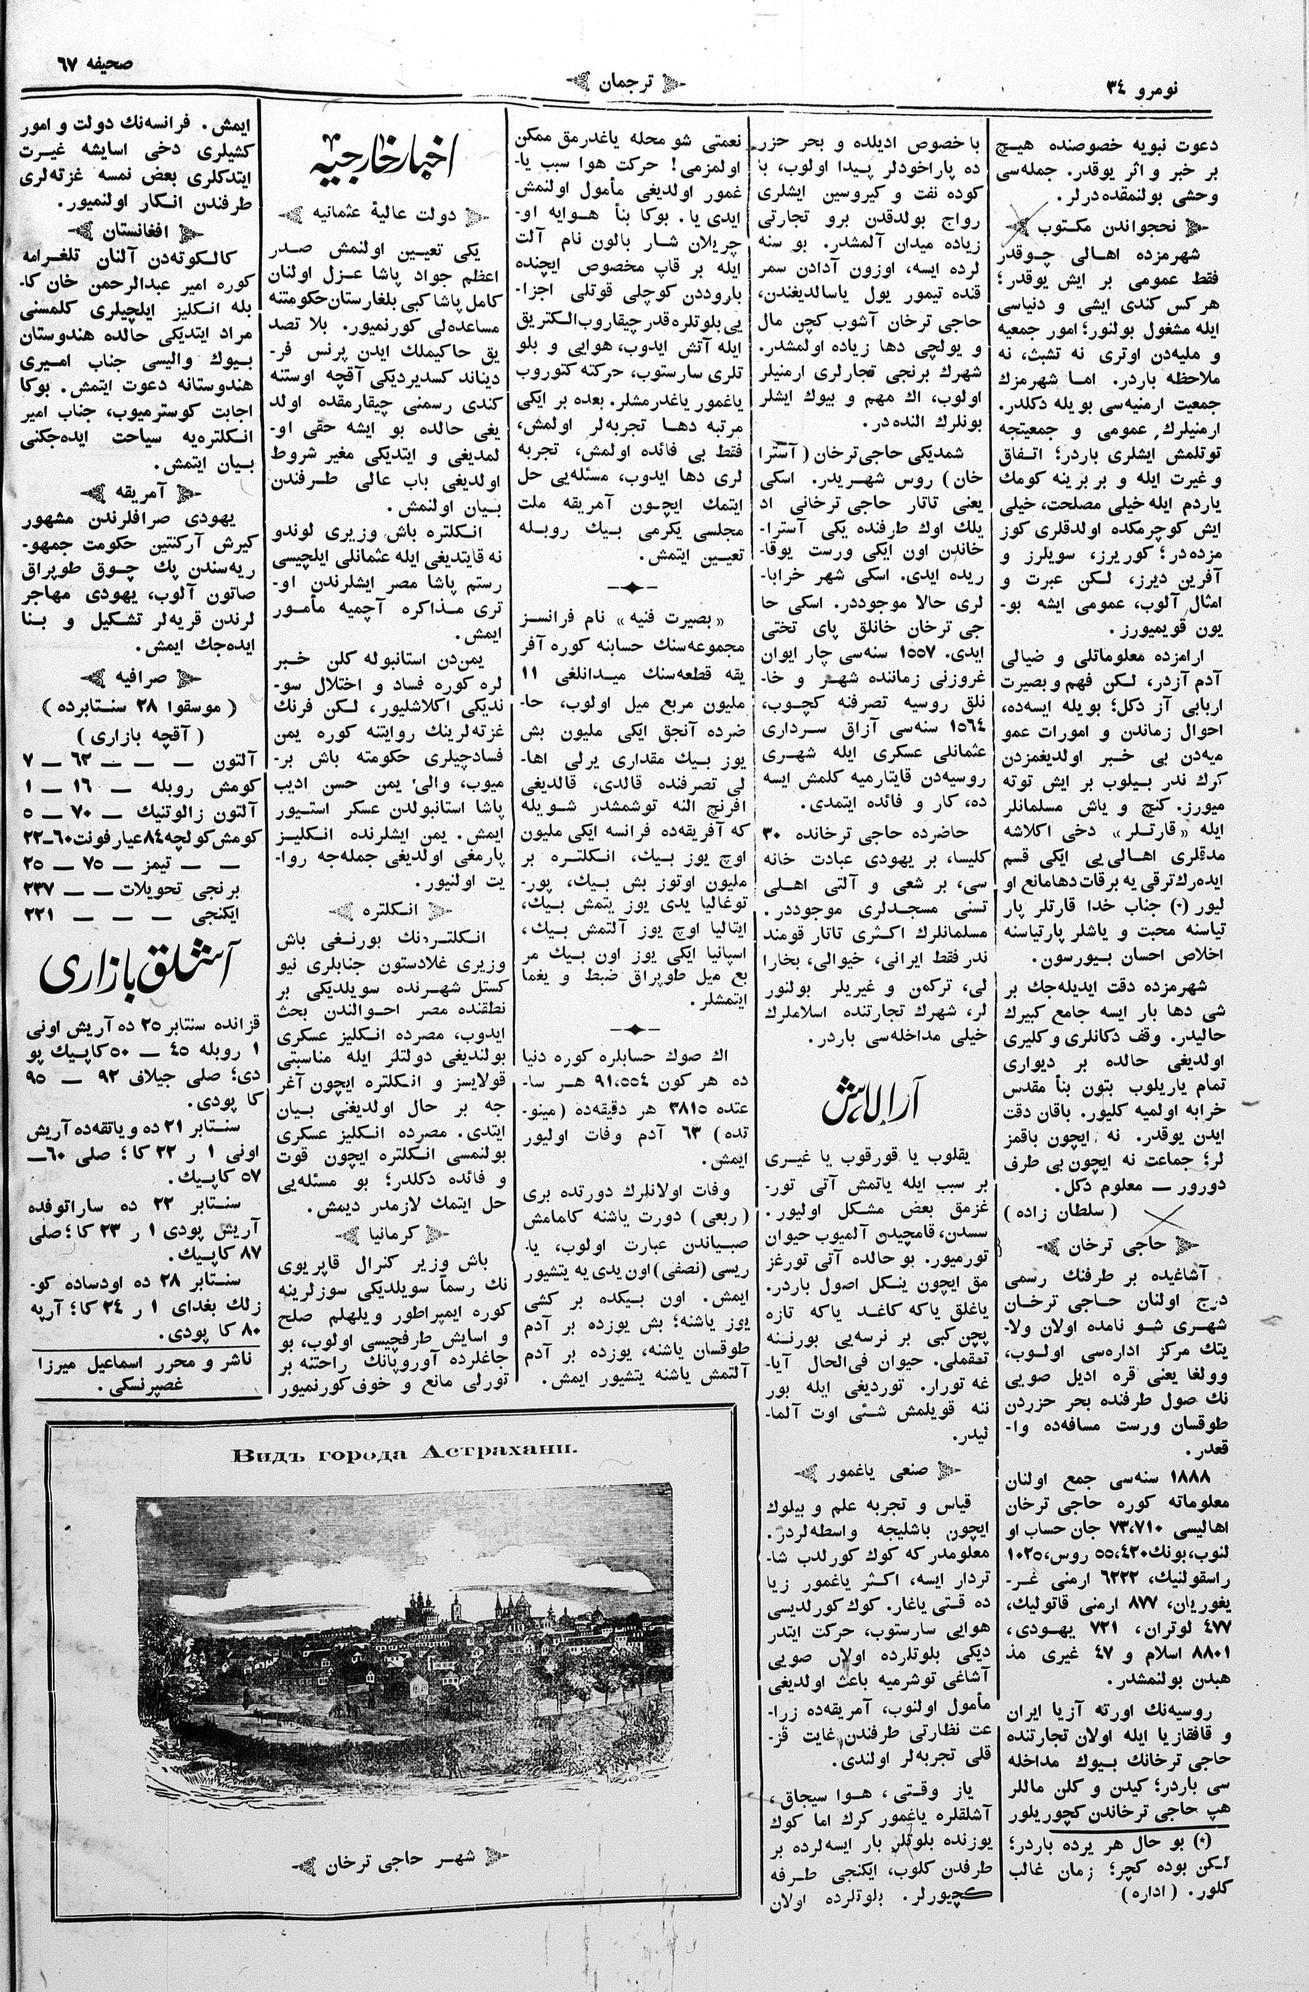 نومرو ٣٤
ترجمان
صحيفه ٦٧
دعوت نبويه خصوصنده هيچ
بر خبر و اثر يوقدر. جمله‌سی
وحشی بولنمقده درلر.
نحجواندن مكتوب
شهرمزده اهالی چوقدر
فقط عمومی بر ايش يوقدر؛
هركس كندی ايشی و دنياسی
ايله مشغول بولنور؛ امور جمعيه
و مليه‌دن اوتری نه تشبث، نه
ملاحظه باردر. اما شهرمزك
جمعيت ارمنيه‌سی بويله دكلدر.
ارمنيلرك عمومی و جمعيتجه
توتلمش ايشلری باردر؛ اتفاق
و غيرت ايله و بر برينه كومك
ياردم ايله خيلی مصلحت، خيلی
ايش كوچرمكده اولدقلری كوز
مزده در؛ كوريرز، سويلرز و
آفرين ديرز، لكن عبرت و
امثال آلوب، عمومی ايشه بو-
يون قويميورز.
ارامزده معلوماتلی و ضيالی
آدم آزدر، لكن فهم و بصيرت
اربابی آز دكل؛ بويله ايسه‌ده،
احوال زماندن و امورات عمو
ميه‌دن بی خبر اولديغمزدن
كرك ندر بيلوب بر ايش توته
ميورز. كنج و ياش مسلمانلر
ايله «قارتلر» دخی اكلاشه
مدقلری اهالی‌يی ايكی قسم
ايده‌رك ترقی يه برقات دها مانع او
ليور (*) جناب خدا قارتلر پار
تياسنه محبت و ياشلر پارتياسنه
اخلاص احسان بيورسون.
شهرمزده دقت ايديله‌جك بر
شی دها بار ايسه جامع كبيرك
حاليدر. وقف دكانلری و كليری
اولديغی حالده بر ديواری
تمام ياريلوب بتون بنأ مقدس
خرابه اولميه كليور. باقان دقت
ايدن يوقدر. نه ايچون باقمز
لر؛ جماعت نه ايچون بی طرف
دورور — معلوم دكل.
(سلطان زاده)
حاجی ترخان
آشاغيده بر طرفنك رسمی
درج اولنان حاجی ترخان
شهری شو نامده اولان ولا-
يتك مركز اداره‌سی اولوب،
وولغا يعنی قره اديل صويی
نك صول طرفنده بحر حزردن
طوقسان ورست مسافه‌ده وا-
قعدر.
١٨٨٨ سنه‌سی جمع اولنان
معلوماته كوره حاجی ترخان
اهاليسی ٧٣،٧١٠ جان حساب او
لنوب، بونك ٥٥،٤٢٠ روس، ١٠٢٥
راسقولنيك، ٦٢٢٢ ارمنی غر-
يغوريان، ٨٧٧ ارمنی قاتوليك،
٤٧٧ لوتران، ٧٢١ يهودی،
٨٨٠١ اسلام و ٤٧ غيری مذ
هبدن بولنمشدر.
روسيه‌نك اورته آزيا ايران
و قافقازيا ايله اولان تجارتنده
حاجی ترخانك بيوك مداخله
سی باردر؛ كيدن و كلن ماللر
هپ حاجی ترخاندن كچوريلور
(*) بو حال هر يرده باردر؛
لكن بوده كچر؛ زمان غالب
كلور. (اداره)
باخصوص اديلده و بحر حزر
ده پاراخودلر پيدا اولوب، با
كوده نفت و كيروسين ايشلری
رواج بولدقدن برو تجارتی
زياده ميدان آلمشدر. بو سنه
لرده ايسه، اوزون آدادن سمر
قنده تيمور يول ياسالديغندن،
حاجی ترخان آشوب كچن مال
و يولچی دها زياده اولمشدر.
شهرك برنجی تجارلری ارمنيلر
اولوب، اك مهم و بيوك ايشلر
بونلرك النده در.
شمديكی حاجی ترخان (آسترا
خان) روس شهريدر. اسكی
يعنی تاتار حاجی ترخانی اد
يلك اوك طرفنده يكی آسترا-
خاندن اون ايكی ورست يوقا-
ريده ايدی. اسكی شهر خرابا-
لری حالا موجوددر. اسكی حا
جی ترخان خانلق پای تختی
ايدی. ١٥٥٧ سنه‌سی چار ايوان
غروزنی زماننده شهر و خا-
نلق روسيه تصرفنه كچوب،
١٥٦٤ سنه‌سی آزاق سرداری
عثمانلی عسكری ايله شهری
روسيه‌دن قايتارميه كلمش ايسه
ده، كار و فائده ايتمدی.
حاضرده حاجی ترخانده ٣٠
كليسا، بر يهودی عبادت خانه
سی، بر شعی و آلتی اهلی
تسنی مسجدلری موجوددر.
مسلمانلرك اكثری تاتار قومند
ندر فقط ايرانی، خيوالی، بخارا
لی، تركمن و غيريلر بولنور
لر، شهرك تجارتنده اسلاملرك
خيلی مداخله‌سی باردر.
آرالاش
يقلوب يا قورقوب يا غيری
بر سبب ايله ياتمش آتی تور-
غزمق بعض مشكل اوليور.
سسدن، قامچيدن آلميوب حيوان
تورميور. بو حالده آتی تورغز
مق ايچون ينكل اصول باردر.
ياغلق ياكه كاغد ياكه تازه
پچن كبی بر نرسه‌يی بورننه
تقمقلی. حيوان فی‌الحال آيا-
غه تورار. تورديغی ايله بور
ننه قويلمش شئی اوت آلما-
ليدر.
صنعی ياغمور
قياس و تجربه علم و بيلوك
ايچون باشليجه واسطه‌لردر.
معلومدر كه كوك كورلدب شا-
تردار ايسه، اكثر ياغمور زيا
ده قتی ياغار. كوك كورلديسی
هوايی سارستوب، حركت ايتدر
ديكی بلوتلرده اولان صويی
آشاغی توشرميه باعث اولديغی
مأمول اولنوب، آمريقه‌ده زرا-
عت نظارتی طرفندن غايت قز-
قلی تجربه‌لر اولندی.
ياز وقتی، هوا سيجاق،
آشلقلره ياغمور كرك اما كوك
يوزنده بلوتلر بار ايسه‌لرده بر
طرفدن كلوب، ايكنجی طرفه
كچيورلر. بلوتلرده اولان
نعمتی شو محله ياغدرمق ممكن
اولمزمی! حركت هوا سبب يا-
غمور اولديغی مأمول اولنمش
ايدی يا. بوكا بنأ هوايه او-
چريلان شار بالون نام آلت
ايله بر قاپ مخصوص ايچنده
باروددن كوچلی قوتلی اجزا-
يی بلوتلره قدر چيقاروب الكتريق
ايله آتش ايدوب، هوايی و بلو
تلری سارستوب، حركته كتوروب
ياغمور ياغدرمشلر. بعده بر ايكی
مرتبه دها تجربه‌لر اولمش،
فقط بی فائده اولمش، تجربه
لری دها ايدوب، مسئله‌يی حل
ايتمك ايچون آمريقه ملت
مجلسی يكرمی بيك روبله
تعيين ايتمش.
«بصيرت فنيه» نام فرانسز
مجموعه‌سنك حسابنه كوره آفر
يقه قطعه‌سنك ميدانلغی ١١
مليون مربع ميل اولوب، حا-
ضرده آنجق ايكی مليون بش
يوز بيك مقداری يرلی اها-
لی تصرفنده قالدی، قالديغی
افرنج النه توشمشدر شويله
كه آفريقه‌ده فرانسه ايكی مليون
اوچ يوز بيك، انكلتره بر
مليون اوتوز بش بيك، پور-
توغاليا يدی يوز يتمش بيك،
ايتاليا اوچ يوز آلتمش بيك،
اسپانيا ايكی يوز اون بيك مر
بع ميل طوپراق ضبط و يغما
ايتمشلر.
اك صوك حسابلره كوره دنيا
ده هر كون ٩١،٥٥٤ هر سا-
عتده ٣٨١٥ هر دقيقه‌ده (مينو-
تده) ٦٣ آدم وفات اوليور
ايمش.
وفات اولانلرك دورتده بری
(ربعی) دورت ياشنه كامامش
صبياندن عبارت اولوب، يا-
ريسی (نصفی) اون يدی يه يتشيور
ايمش. اون بيكده بر كشی
يوز ياشنه؛ بش يوزده بر آدم
طوقسان ياشنه، يوزده بر آدم
آلتمش ياشنه يتشيور ايمش.
اخبار خارجيه
دولت عاليهٔ عثمانيه
يكی تعيين اولنمش صدر
اعظم جواد پاشا عزل اولنان
كامل پاشا كبی بلغارستان حكومتنه
مساعده‌لی كورنميور. بلا تصد
يق حاكيملك ايدن پرنس فر-
ديناند كسديرديكی آقچه اوستنه
كندی رسمنی چيقارمقده اولد
يغی حالده بو ايشه حقی او-
لمديغی و ايتديكی مغير شروط
اولديغی باب عالی طرفندن
بيان اولنمش.
انكلتره باش وزيری لوندو
نه قايتديغی ايله عثمانلی ايلچيسی
رستم پاشا مصر ايشلرندن او-
تری مذاكره آچميه مأمور
ايمش.
يمن‌دن استانبوله كلن خبر
لره كوره فساد و اختلال سو-
نديكی اكلاشليور، لكن فرنك
غزته‌لرينك روايتنه كوره يمن
فسادچيلری حكومته باش بر-
ميوب، والیٔ يمن حسن اديب
پاشا استانبولدن عسكر استيور
ايمش. يمن ايشلرنده انكليز
پارمغی اولديغی جمله‌جه روا-
يت اولنيور.
انكلتره
انكلترەنك بورنغی باش
وزيری غلادستون جنابلری نيو
كستل شهرنده سويلديكی بر
نطقنده مصر احوالندن بحث
ايدوب، مصرده انكليز عسكری
بولنديغی دولتلر ايله مناسبتی
قولايسز و انكلتره ايچون آغر
جه بر حال اولديغنی بيان
ايتدی. مصرده انكليز عسكری
بولنمسی انكلتره ايچون قوت
و فائده دكلدر؛ بو مسئله‌يی
حل ايتمك لازمدر ديمش.
كرمانيا
باش وزير كنرال قاپريوی
نك رسماً سويلديكی سوزلرينه
كوره ايمپراطور ويلهلم صلح
و اسايش طرفچيسی اولوب، بو
جاغلرده آوروپانك راحتنه بر
تورلی مانع و خوف كورنميور
ايمش. فرانسه‌نك دولت و امور
كشيلری دخی اسايشه غيرت
ايتدكلری بعض نمسه غزته‌لری
طرفندن انكار اولنميور.
افغانستان
كالكوته‌دن آلنان تلغرامه
كوره امير عبدالرحمن خان كا-
بله انكليز ايلچيلری كلمسنی
مراد ايتديكی حالده هندوستان
بيوك واليسی جناب اميری
هندوستانه دعوت ايتمش. بوكا
اجابت كوسترميوب، جناب امير
انكلتره‌يه سياحت ايده‌جكنی
بيان ايتمش.
آمريقه
يهودی صرافلرندن مشهور
كيرش آركنتين حكومت جمهو-
ريه‌سندن پك چوق طوپراق
صاتون آلوب، يهودی مهاجر
لرندن قريه‌لر تشكيل و بنا
ايده‌جك ايمش.
صرافيه
(موسقوا ٢٨ سنتابرده)
(آقچه بازاری)
آلتون — — — ٦٢ — ٧
كومش روبله — ١٦ — ١
آلتون زالوتنيك — ٧٠ — ٥
كومش كولچه ٨٤ عيار فونت ٦٠-٢٢
— — تيمز — ٧٥ — ٢٥
برنجی تحويلات — — ٢٣٧
ايكنجی — — — ٢٢١
آشلق بازاری
قزانده سنتابر ٢٥ ده آريش اونی
١ روبله ٤٥ — ٥٠ كاپيك پو
دی؛ صلی جيلاف ٩٢ — ٩٥
كا پودی.
سنتابر ٢١ ده وياتقه‌ده آريش
اونی ١ ر ٢٢ كا؛ صلی ٦٠—
٥٧ كاپيك.
سنتابر ٢٢ ده ساراتوفده
آريش پودی ١ ر ٢٣ كا؛ صلی
٨٧ كاپيك.
سنتابر ٢٨ ده اودساده كو-
زلك بغدای ١ ر ٢٤ كا؛ آرپه
٨٠ كا پودی.
ناشر و محرر اسماعيل ميرزا
غصپرنسكی.
Видъ города Астрахани.
شهر حاجی ترخان